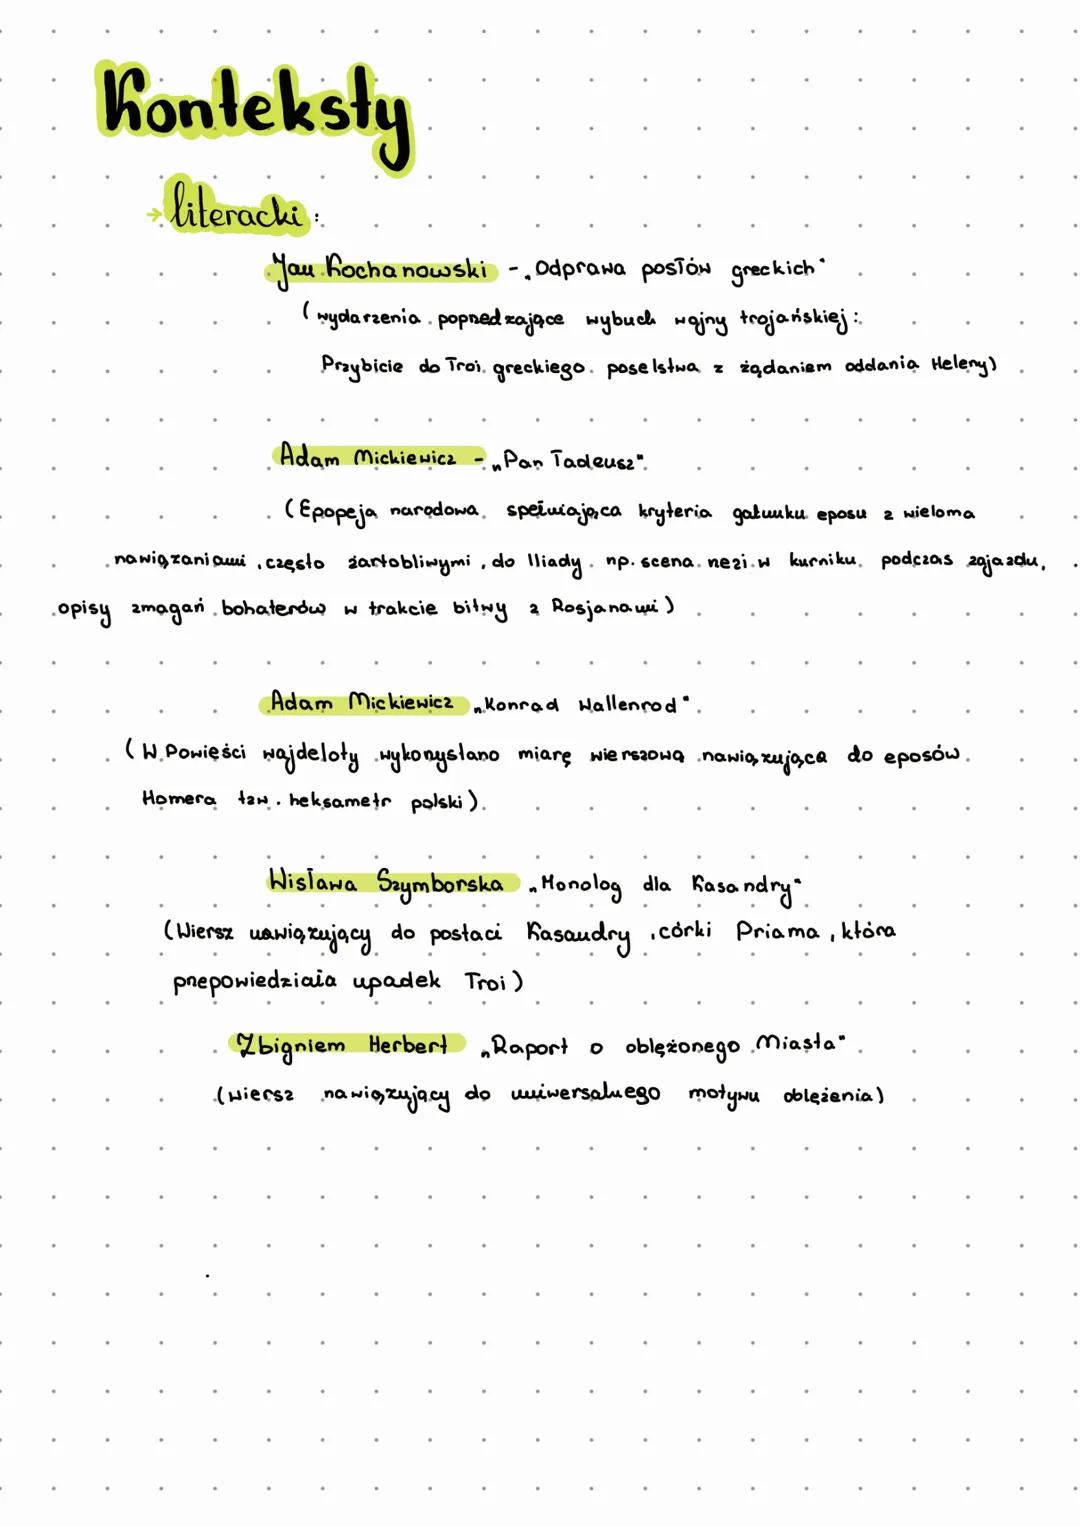 Konteksty
→ literacki:
Jan Kochanowski - „Odprawa posłów greckich"
(wydarzenia poprzedzające wybuch wojny trojańskiej:
Przybicie do Troi greckiego poselstwa z żądaniem oddania Heleny)
Adam Mickiewicz - „Pan Tadeusz"
(Epopeja narodowa spełniająca kryteria gatunku eposu z wieloma
nawiązaniami, często żartobliwymi, do Iliady np. scena rzezi w kurniku podczas zajazdu,
opisy zmagań bohaterów w trakcie bitwy z Rosjanami)
Adam Mickiewicz „Konrad Wallenrod"
(W Powieści wajdeloty wykorzystano miarę wierszową nawiązującą do eposów
Homera tzw. heksametr polski)
Wisława Szymborska „Monolog dla Kasandry"
(Wiersz nawiązujący do postaci Kasandry, córki Priama, która
przepowiedziała upadek Troi)
Zbigniew Herbert „Raport o oblężonego Miasta"
(wiersz nawiązujący do uniwersalnego motywu oblężenia)